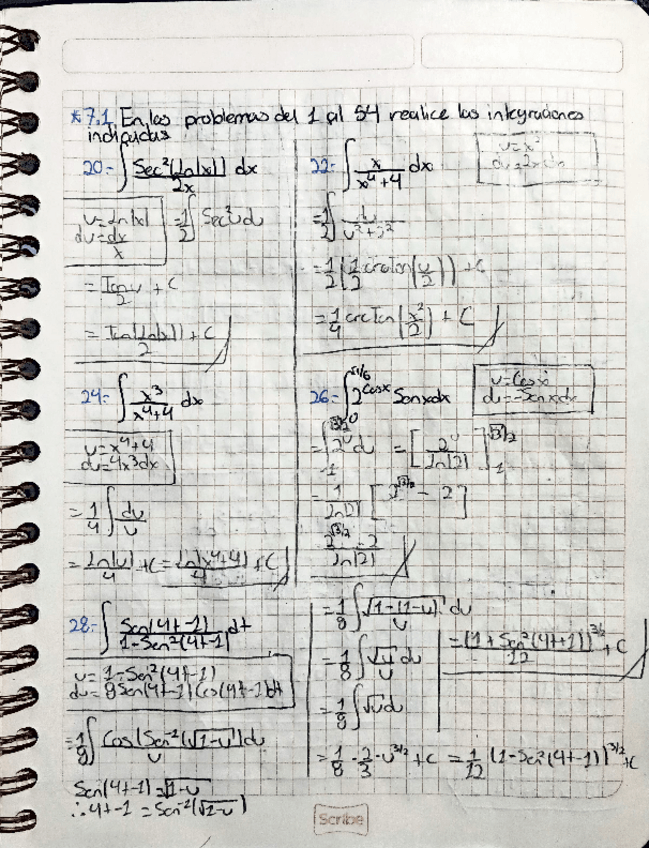 *7.1 En los problemas del 1 al 54 realice las integraciones
indicadas
20- ∫ Sec²(Ln|x|)/2x dx
u=Ln|x|
du=dx/x
=1/2 ∫ Sec²u du
= Tan u/2 + C
= Tan(Ln|x|)/2 + C
22- ∫ x/(x⁴+4) dx
u=x²
du=2xdx
=1/2 ∫ du/(u²+2²)
=1/2 (1/2 arctan(u/2)) + C
=1/4 arcTan(x²/2) + C
24- ∫ x³/(x⁴+4) dx
u=x⁴+4
du=4x³dx
=1/4 ∫ du/u
= Ln|u|/4 +C = Ln|x⁴+4|/4 + C
26- ∫₀^π/6 2^Cosx Senxdx
u=Cosx
du=-Senxdx
= ∫ 2^u du = [2^u/Ln|2|]
=1/Ln|2| [2^√3/2 - 2]
2^√3/2 - 2/Ln|2|
28- ∫ Sen(4t-1)/1-Sen²(4t-1) dt
u=1-Sen²(4t-1)
du=8Sen(4t-1)Cos(4t-1)dt
=1/8 ∫ Cos(Sen⁻¹(√1-u))du/u
Sen(4t-1)=√1-u
∴4t-1=Sen⁻¹(√1-u)
=1/8 ∫ √1-(1-u)/u du
=1/8 ∫ √u/u du
=1/8 ∫ √u du
=1/8 · 2/3 · u^3/2 + C = 1/12 (1-Sen²(4t-1))^3/2 + C
=(1+Sen²(4t+1))^3/2/12 + C
Scribe